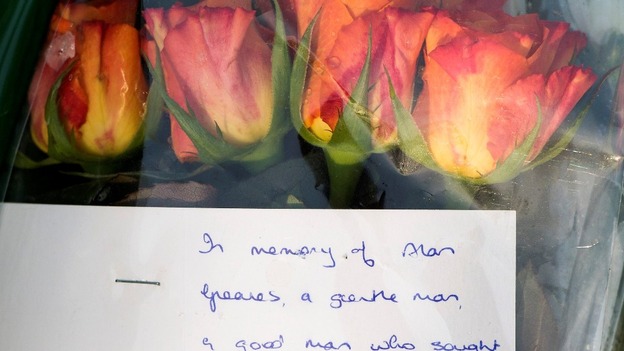 In memory of Alan
Greaves, a gentle man,
a good man who sought